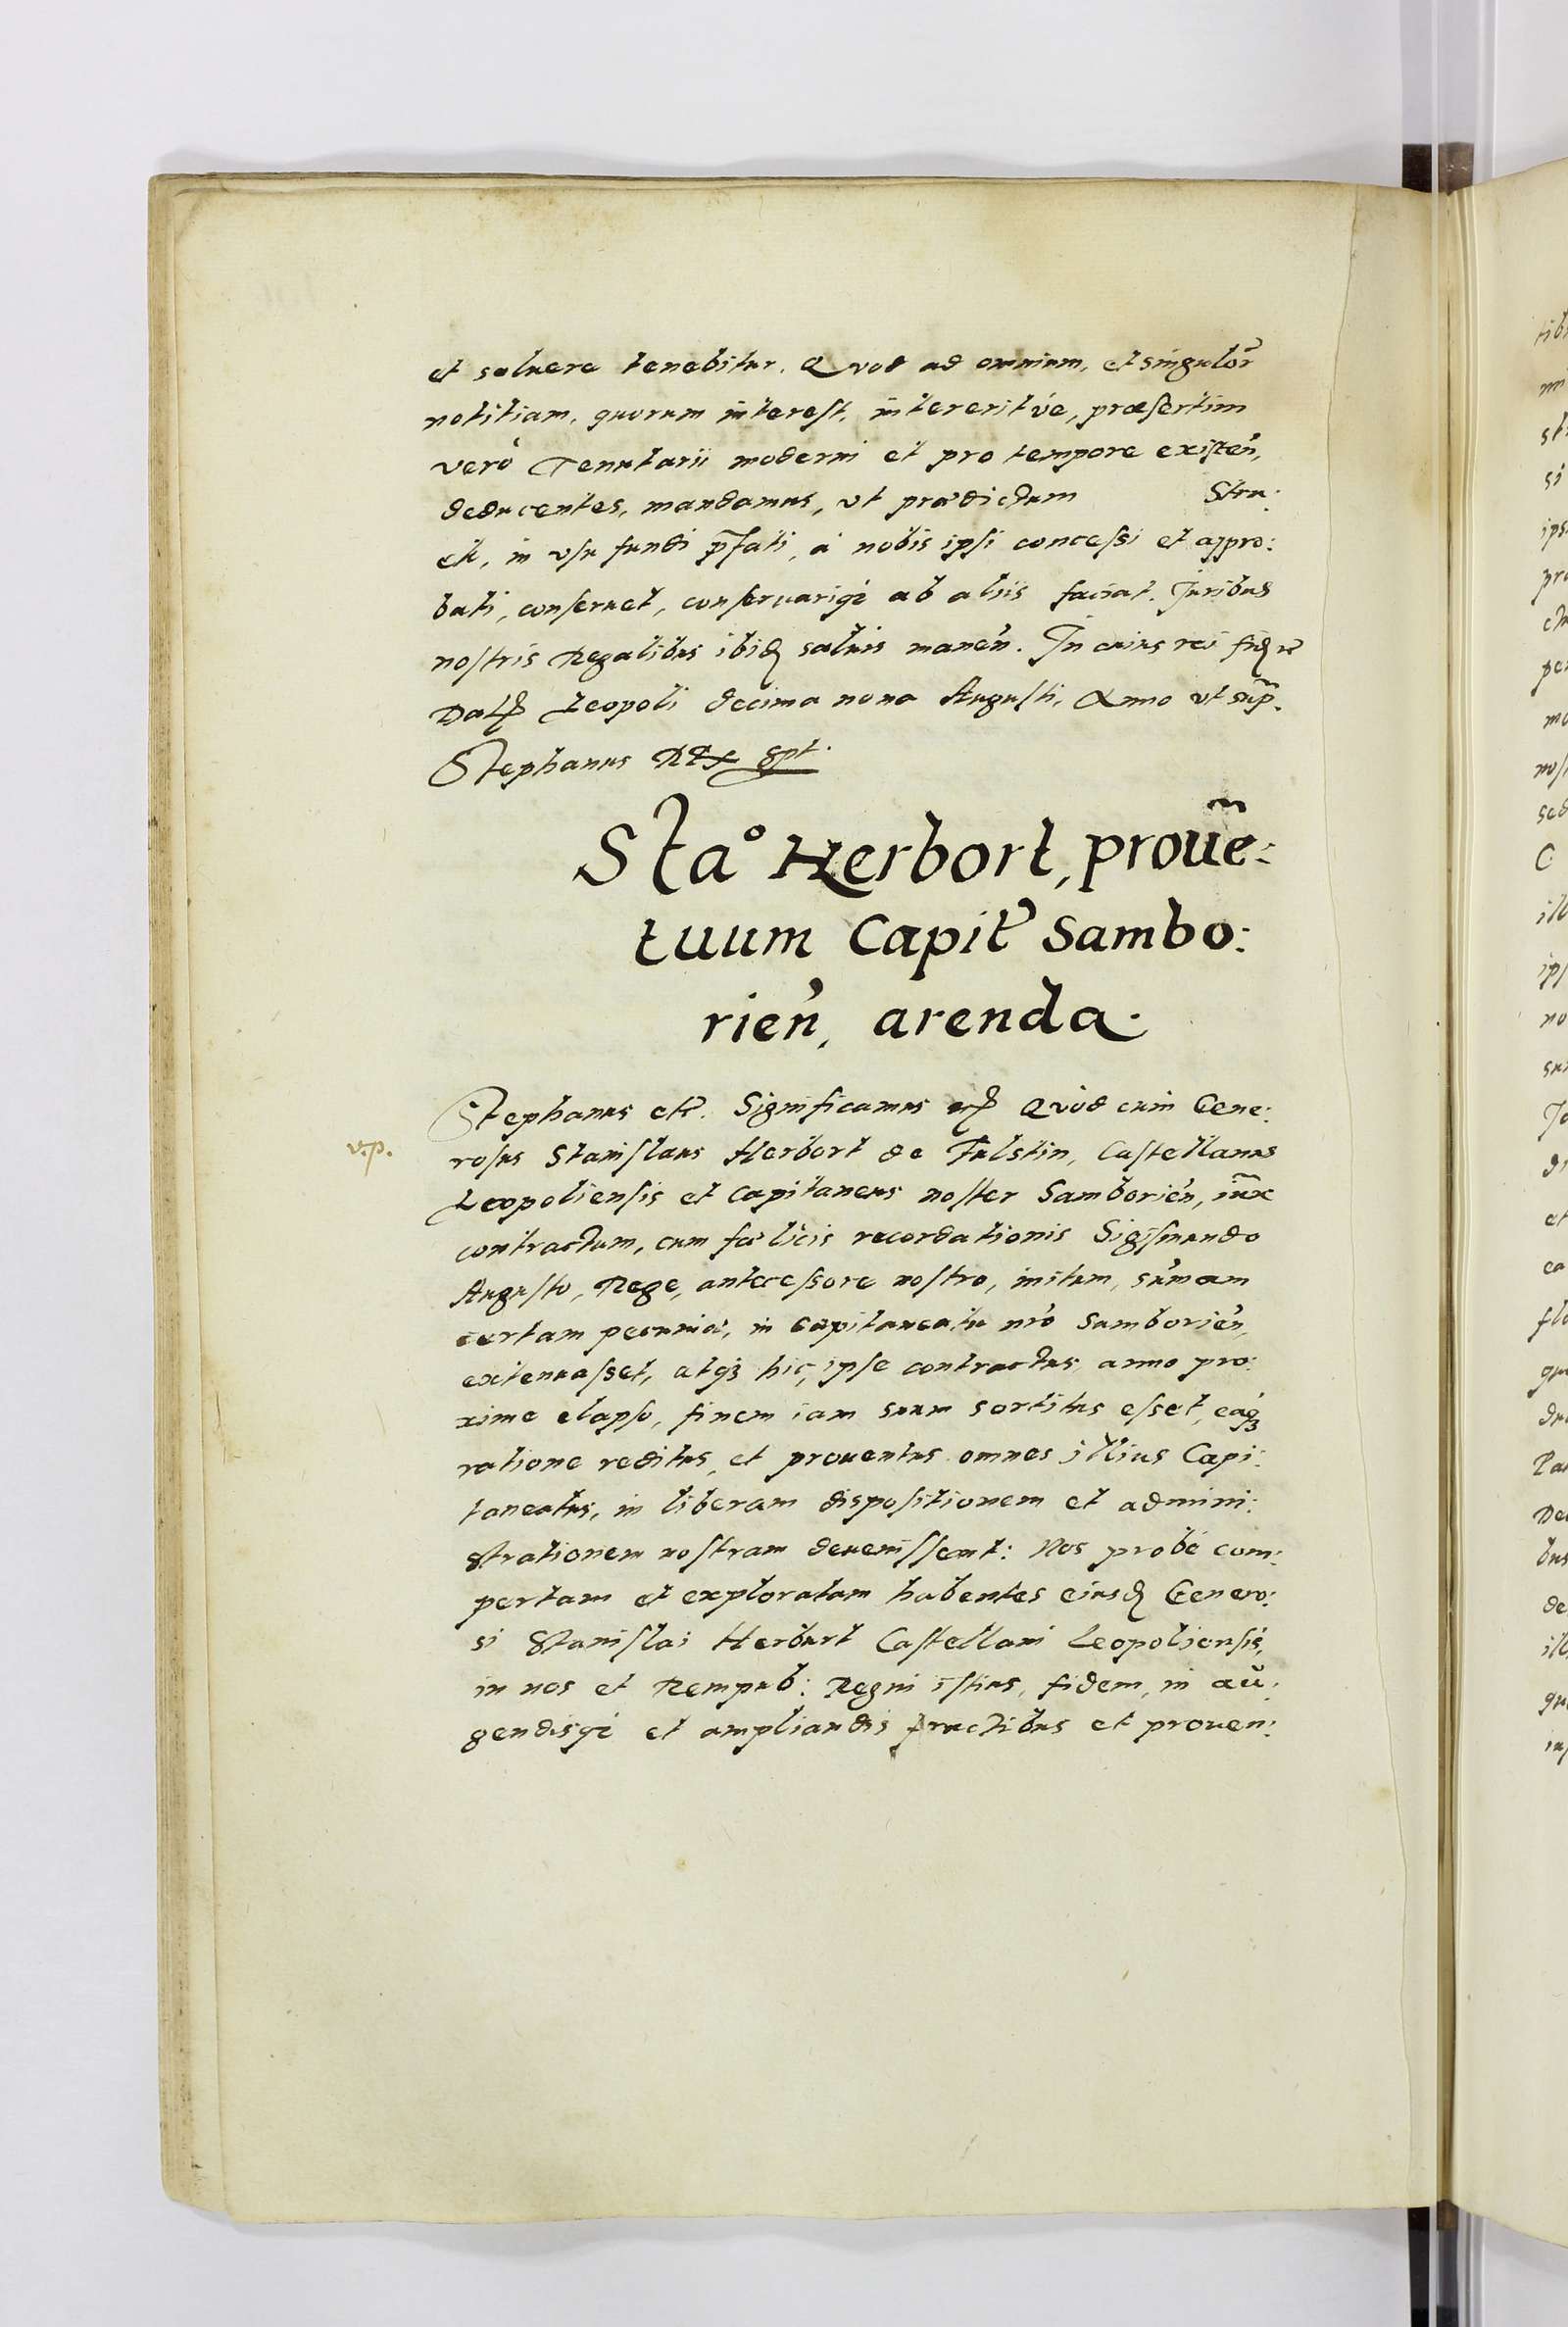 et soluere tenebitur. Quod ad omnium, et singulor̃
notitiam, quorum interest, intererit ve, præsertim
verò Tenutarii moderni et pro tempore existeñ,
deducentes, mandamus, vt prædictum Stru:
etc, in vsu fundi p̃fati, à nobis ipsi concessi et appro:
bati, conseruet, conseruariq́ʒ ab aliis faciat. Juribus
nostris Regalibus ibid̃ saluis maneñ. In cuius rei fid̃ etc
Dat̃ Leopoli decima nona Augusti, Anno vt sup̃.
Stephanus Rex sp̃t.
Sta° Herbort, prouẽ:
tuum Capit̃ Sambo:
rieñ, arenda.
Stephanus etc̃. Significamus etc̃ Quòd cum Gene:
v.p.
rosus Stanislaus Herbort de Fulstin, Castellanus
Leopoliensis et Capitaneus noster Samborieñ, iux̃
contractum, cum fœlicis recordationis Sigismundo
Augusto, Rege, antecessore nostro, initum, sum̃am
certam pecuniæ, in Capitaneatu nr̃o Samborieñ,
extenuasset, atqʒ hic, ipse contractus, anno pro:
xime elapso, finem iam suum sortitus esset, eaq́ʒ
ratione reditus, et prouentus omnes illius Capi:
taneatus, in liberam dispositionem et admini:
strationem nostram deuenissent: Nos probè com:
pertam et exploratam habentes eiusd̃ Genero:
si Stanislai Herburt Castellani Leopoliensis,
in nos et Rempub: Regni istius, fidem, in au:
gendisq́ʒ et ampliandis fructibus et prouen: